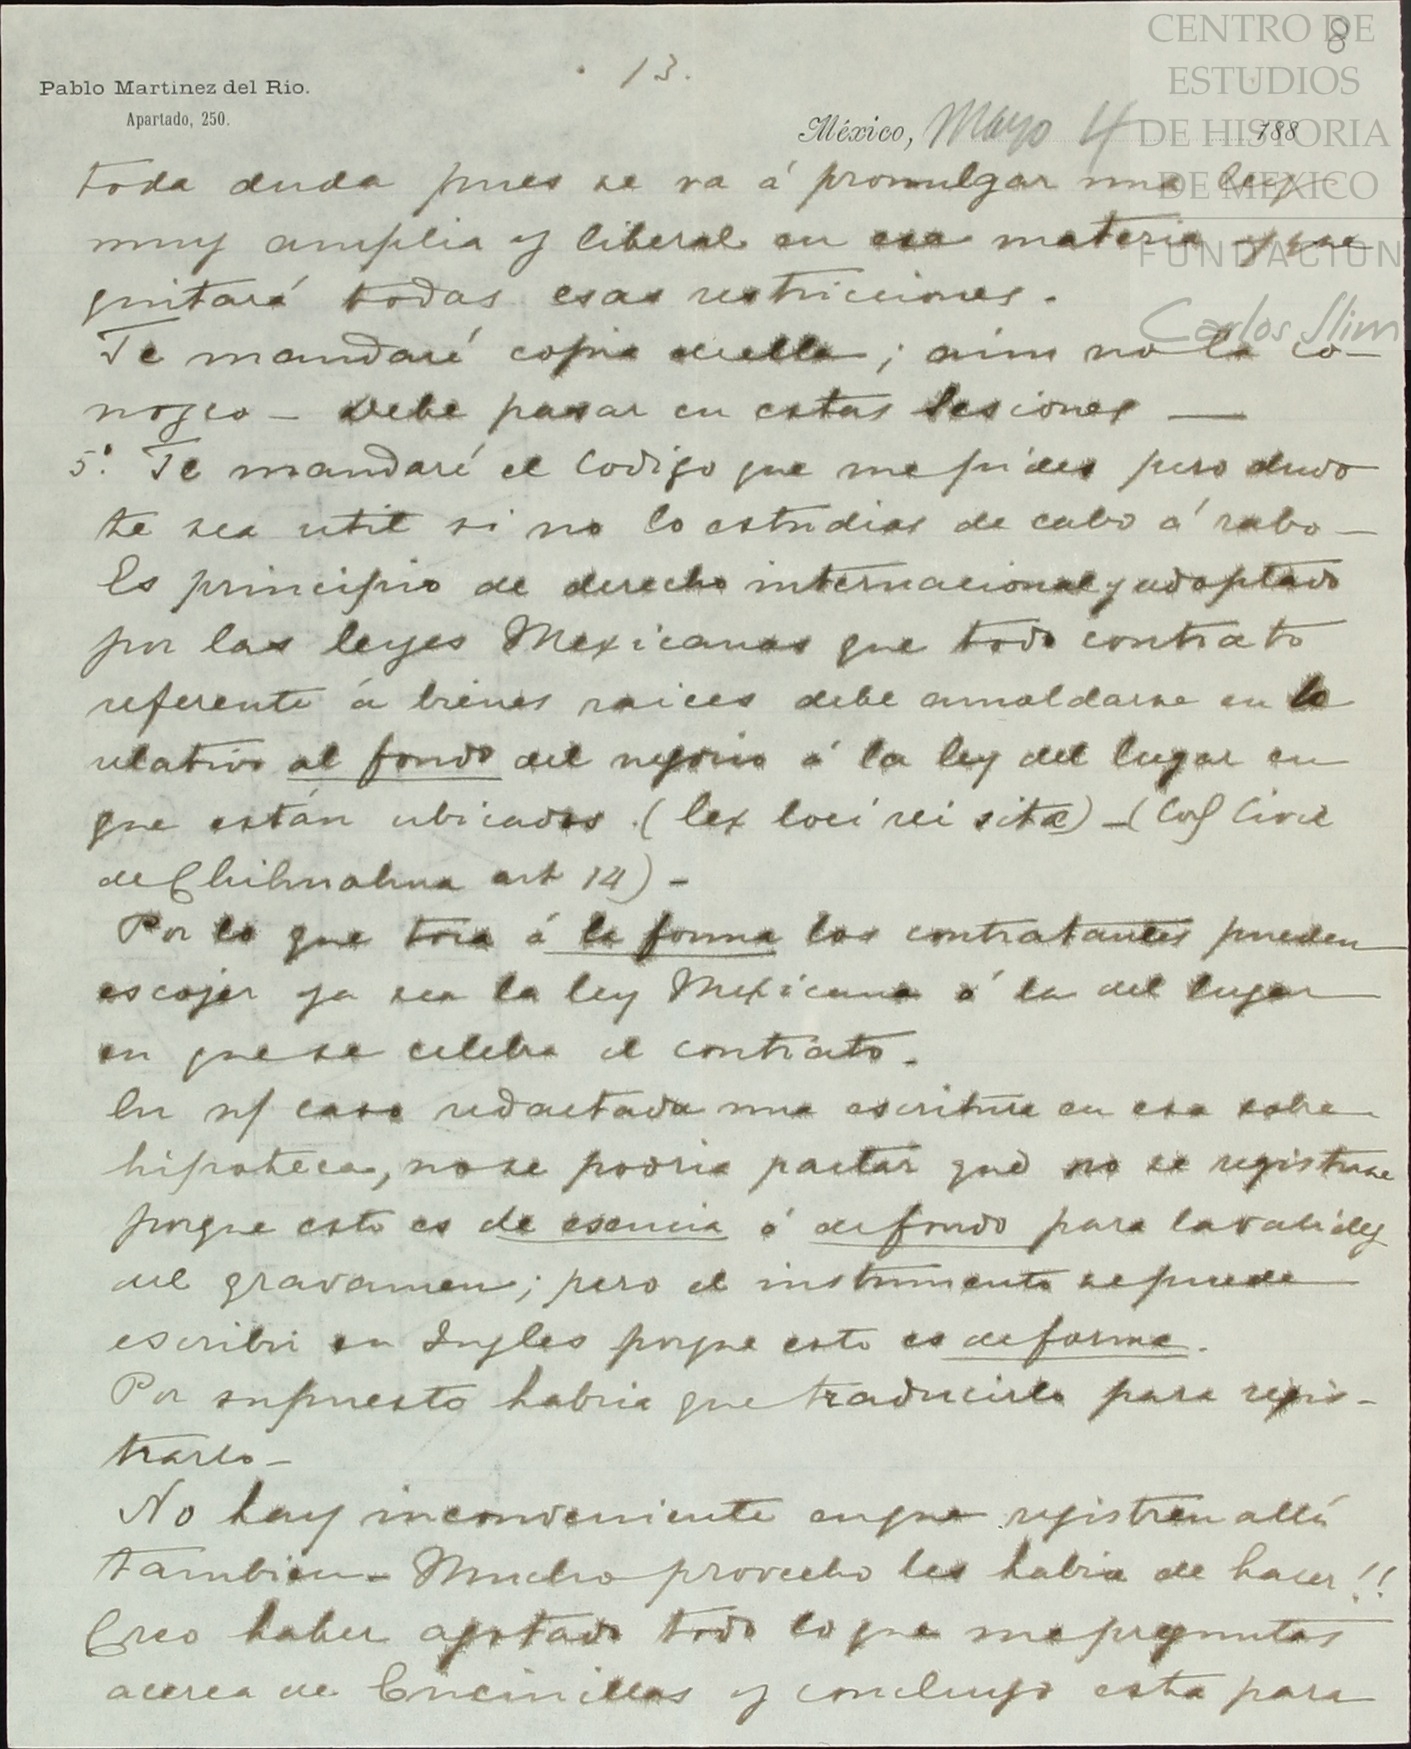 8
CENTRO DE
ESTUDIOS
DE HISTORIA
DE MEXICO
FUNDACION
Carlos Slim
13.
Pablo Martinez del Rio.
Apartado, 250.
México, Mayo 4 188
toda duda pues se va á promulgar una ley
muy amplia y liberal en esa materia y que
quitará todas esas restricciones.
Te mandaré copia de ella; aun no la co-
nozco - Debe pasar en estas sesiones —
5º. Te mandaré el Codigo que me pides pero dudo
te sea util si no lo estudias de cabo á rabo -
Es principio de derecho internacional y adoptado
por las leyes Mexicanas que todo contrato
referente á bienes raices debe amoldarse en lo
relativo al fondo del negocio á la ley del lugar en
que están ubicados. (lex loci rei sitæ) - (Cod Civil
de Chihuahua art 14) -
Por lo que toca á la forma los contratantes pueden
escojer ya sea la ley Mexicana ó la del lugar
en que se celebra el contrato.
En n/ caso redactada una escritura en esa sobre
hipoteca, no se podria pactar que no se registrase
porque esto es de esencia ó de fondo para la validez
del gravamen; pero el instrumento se puede
escribir en Ingles porque esto es de forma.
Por supuesto habria que traducirlo para regis-
trarlo -
No hay inconveniente en que registren allá
tambien - Mucho provecho les habia de hacer!!
Creo haber agotado todo lo que me preguntas
acerca de Encinillas y concluyo esta para